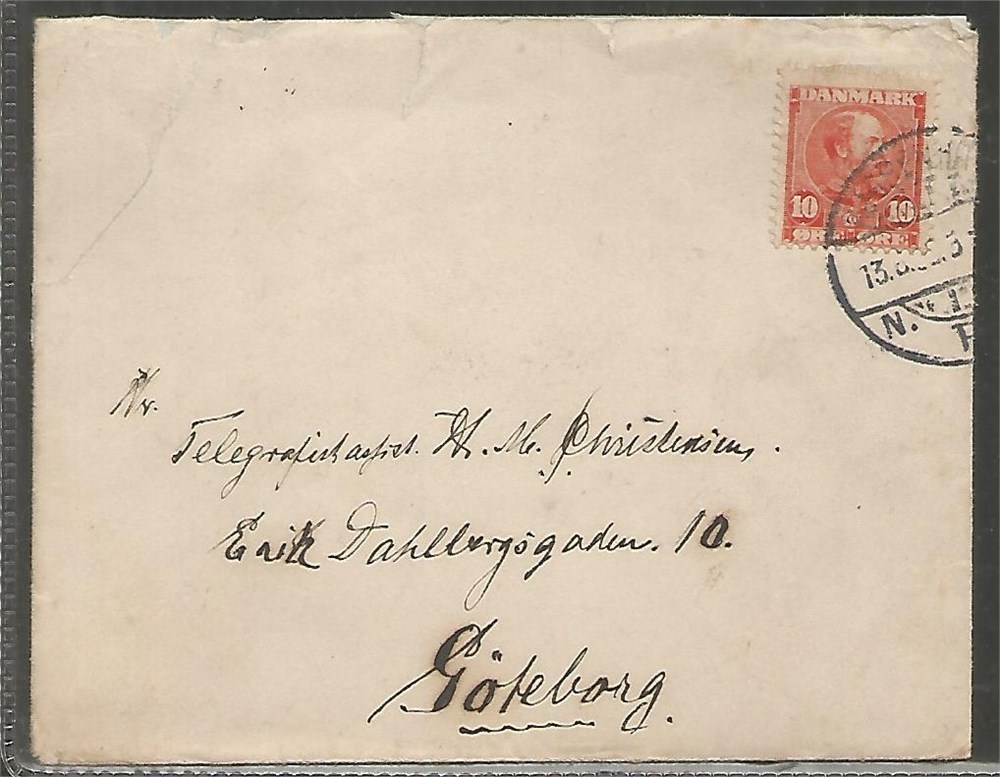 DANMARK
10 10
ØRE ØRE
N.
Hr.
Telegrafistassist. H. M. Christensen.
Erik Dahlbergsgaden. 10.
Göteborg.